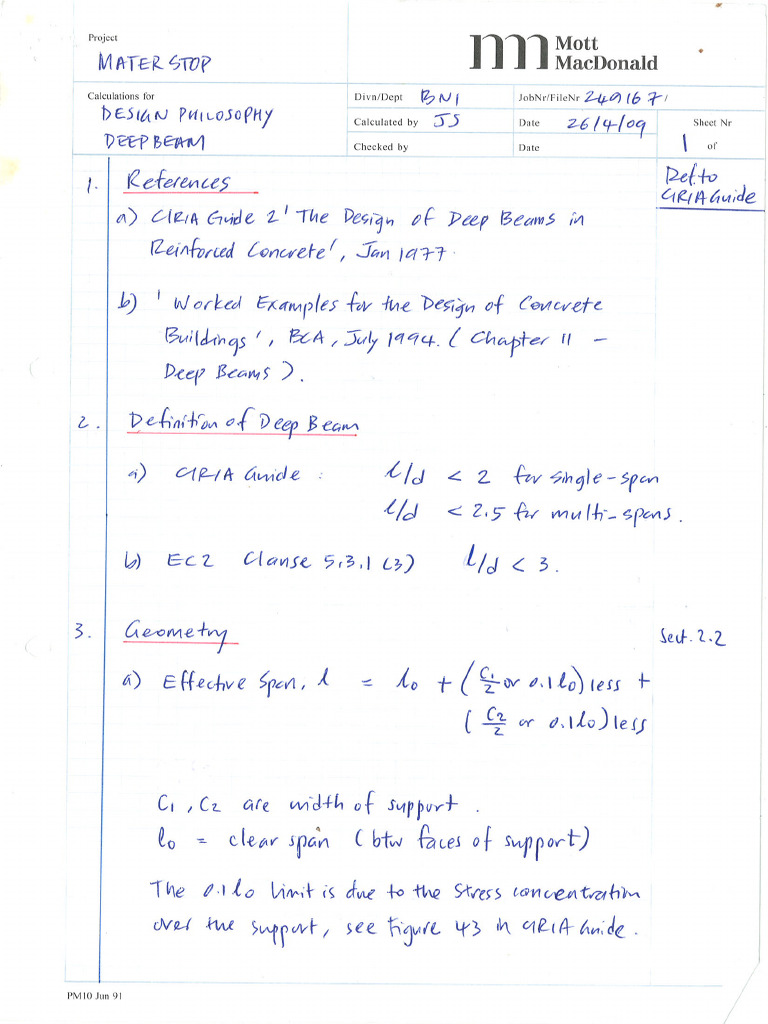 Project
MATER STOP
Mott
MacDonald
Calculations for
DESIGN PHILOSOPHY
DEEP BEAM
Divn/Dept BNI
JobNr/FileNr 249167/
Calculated by JS
Date 26/4/09
Sheet Nr
1 of
Checked by
Date
Ref. to
CIRIA Guide
1. References
a) CIRIA Guide 2 'The Design of Deep Beams in
Reinforced Concrete', Jan 1977.
b) 'Worked Examples for the Design of Concrete
Buildings', BCA, July 1994. (Chapter 11 -
Deep Beams).
2. Definition of Deep Beam
a) CIRIA Guide : l/d < 2 for single-span
l/d < 2.5 for multi-spans.
b) EC2 Clause 5.3.1 (3) l/d < 3.
3. Geometry
Sect. 2.2
a) Effective Span, l = lo + (C1/2 or 0.1lo) less +
(C2/2 or 0.1lo) less
C1, C2 are width of support.
lo = clear span (btw faces of support)
The 0.1lo limit is due to the stress concentration
over the support, see Figure 43 in CIRIA Guide.
PM10 Jun 91